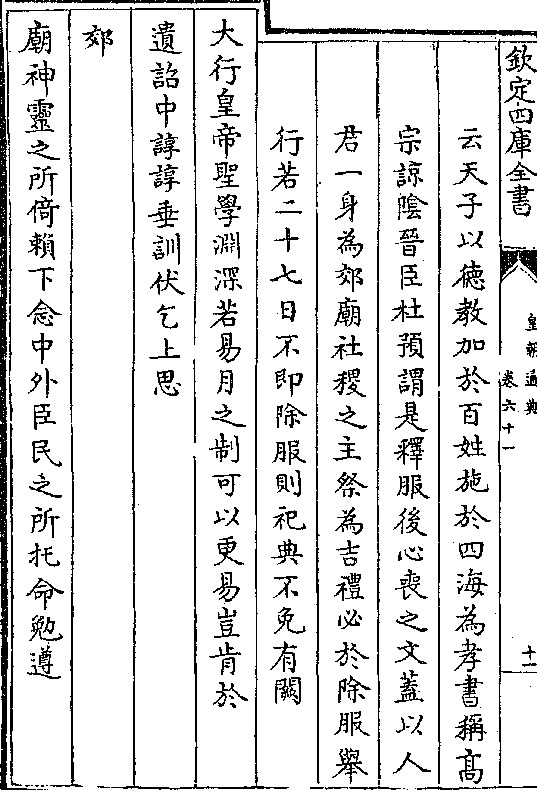 欽定四庫全書
皇朝通典
卷六十一
十一
云天子以德教加於百姓施於四海為孝書稱髙
宗諒陰晉臣杜預謂是釋服後心喪之文蓋以人
君一身為郊廟社稷之主祭為吉禮必於除服舉
行若二十七日不即除服則祀典不免有闕
大行皇帝聖學淵深若易月之制可以更易豈肯於
遺詔中諄諄垂訓伏乞上思
郊
廟神靈之所倚賴下念中外臣民之所托命勉遵